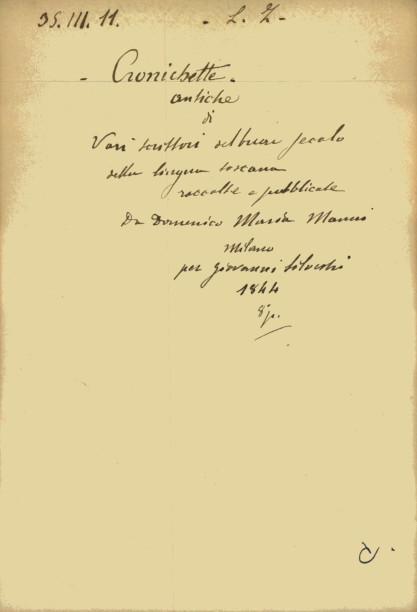 35. III. 11. - L. Z -
- Cronichette -
antiche
di
Vari scrittori del buon secolo
della lingua toscana
raccolte e pubblicate
Da Domenico Maria Manni
Milano
per Giovanni Silvestri
1844
8º p.
C.